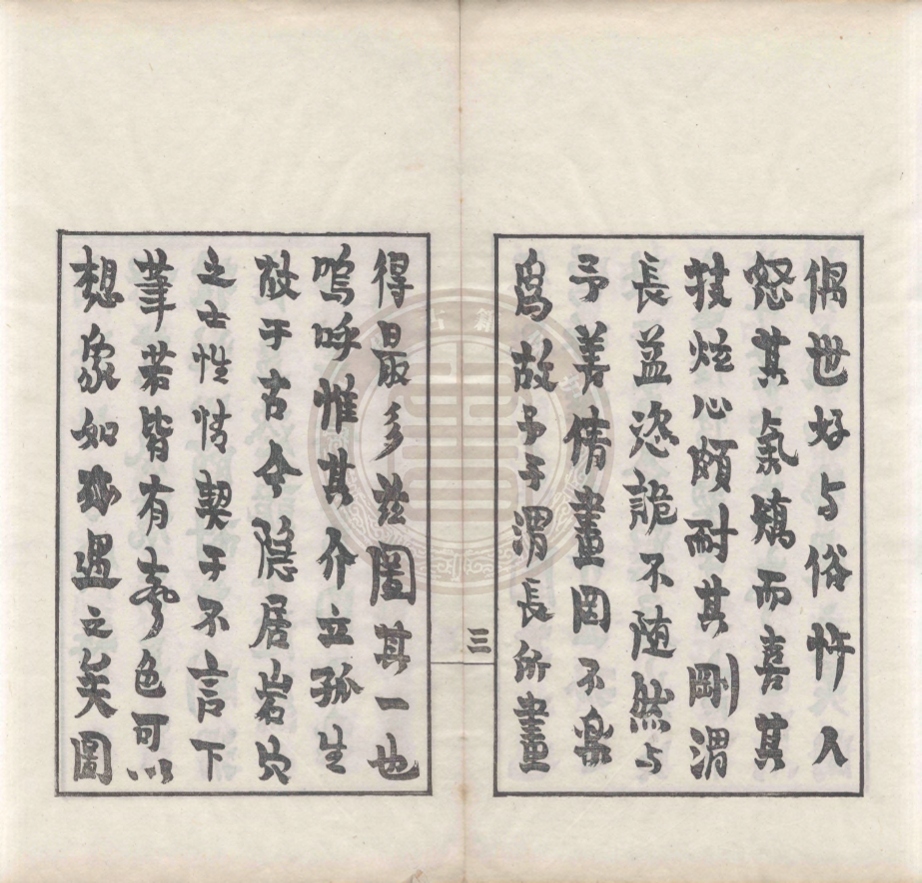 偶世好与俗忤人
怒其氣矯而喜其
技炫心頗耐其剛渭
長益恣詭不随然与
予善倩畫罔不樂
為故予于渭長所畫
三
得最多茲圖其一也
嗚呼惟其介立孤生
故于古今隱居岩穴
之士性情契于不言下
筆若皆有聲色可以
想象如或遇之矣圖